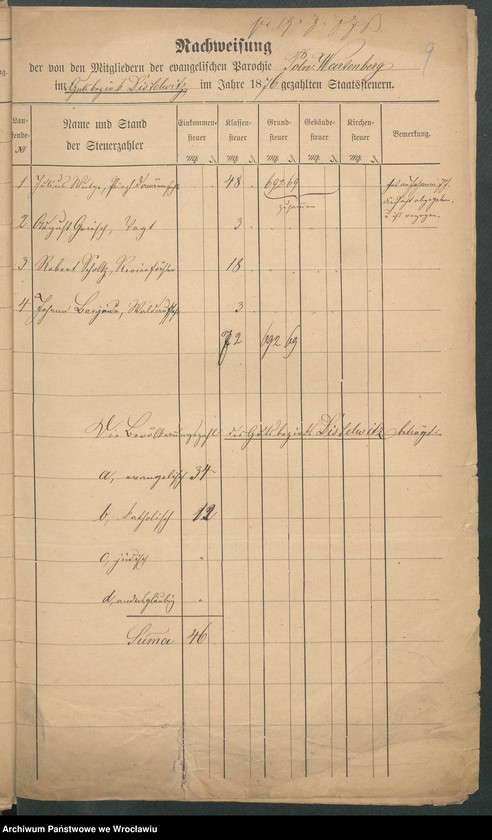 9
Nachweisung
der von den Mitgliedern der evangelischen Parochie Poln. Wartenberg
im Gutsbezirk Distelwitz im Jahre 1876 gezahlten Staatssteuern.
Lau-
fende-
№
Name und Stand
der Steuerzahler
Einkommen-
steuer
Klassen-
steuer
Grund-
steuer
Gebäude-
steuer
Kirchen-
steuer
Bemerkung.
1 Julius 48 692 69
zusammen
2 August Vogt 3
3 Robert Scholtz, Revierförster 18
4 Johann 3
72 692 69
Die Bevölkerungszahl des Gutsbezirks Distelwitz beträgt:
a, evangelisch 34
b, katholisch 12
c, jüdisch "
d, andersgläubig "
Suma 46
Archiwum Państwowe we Wrocławiu